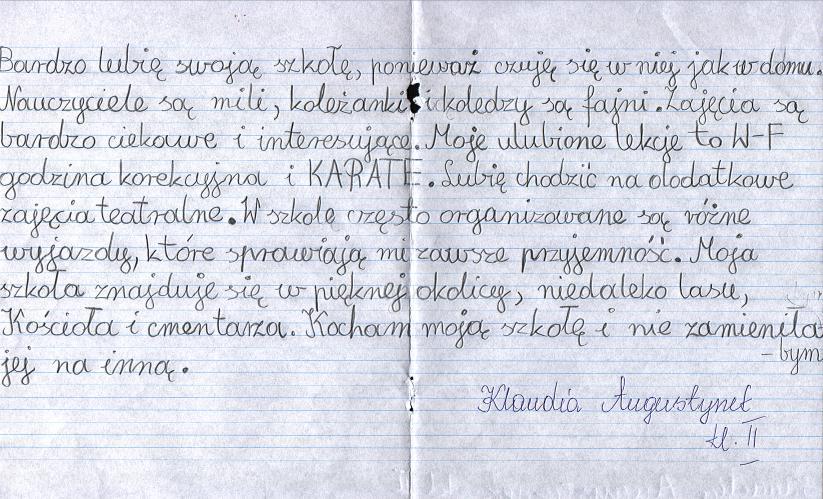 Bardzo lubię swoją szkołę, ponieważ czuję się w niej jak w domu.
Nauczyciele są mili, koleżanki i koledzy są fajni. Zajęcia są
bardzo ciekawe i interesujące. Moje ulubione lekcje to W-F
godzina korekcyjna i KARATE. Lubię chodzić na dodatkowe
zajęcia teatralne. W szkole często organizowane są różne
wyjazdy, które sprawiają mi zawsze przyjemność. Moja
szkoła znajduje się w pięknej okolicy, niedaleko lasu,
Kościoła i cmentarza. Kocham moją szkołę i nie zamieniła
- bym
jej na inną.
Klaudia Augustynek
kl. II